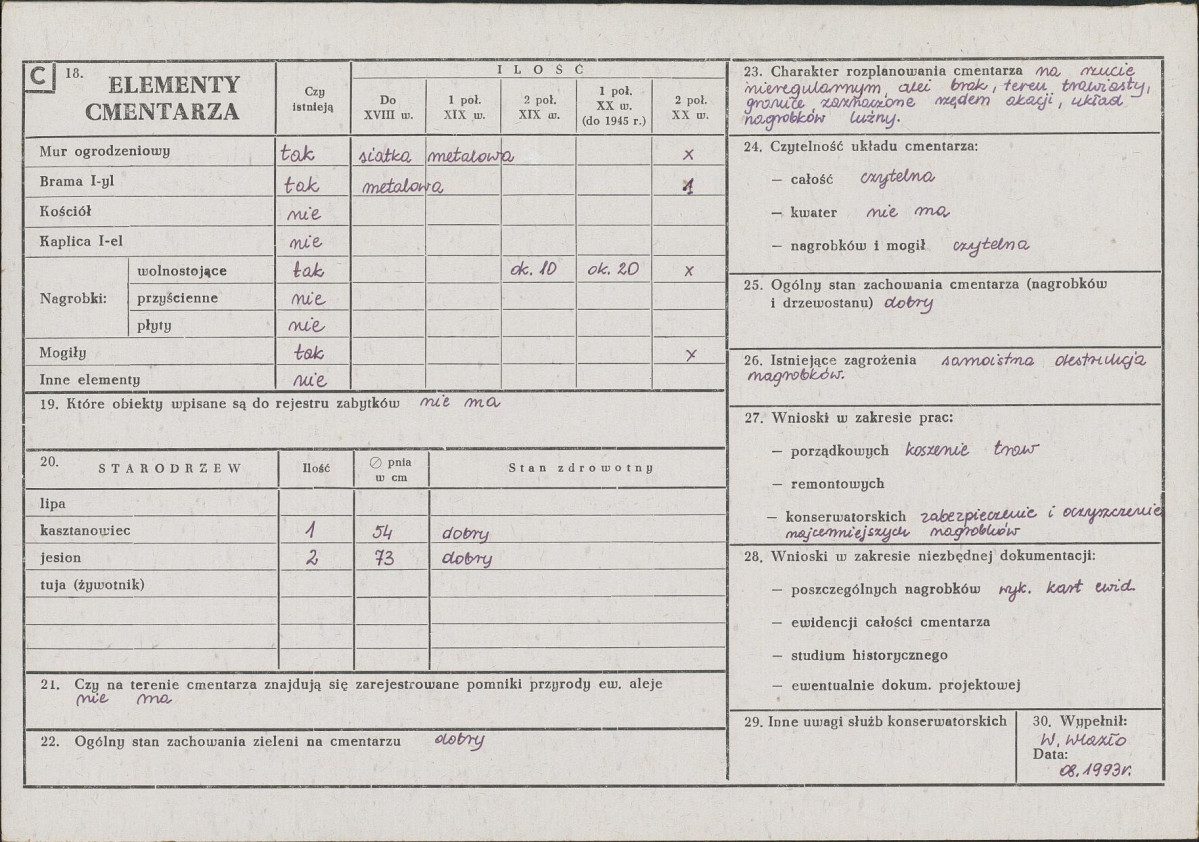 C 18. ELEMENTY CMENTARZA
Czy istnieją
ILOŚĆ
Do XVIII w.
1 poł. XIX w.
2 poł. XIX w.
1 poł. XX w. (do 1945 r.)
2 poł. XX w.
Mur ogrodzeniowy tak siatka metalowa x
Brama I-yl tak metalowa 1
Kościół nie
Kaplica I-el nie
Nagrobki:
wolnostojące tak ok. 10 ok. 20 x
przyścienne nie
płyty nie
Mogiły tak x
Inne elementy nie
19. Które obiekty wpisane są do rejestru zabytków nie ma
20. STARODRZEW Ilość ∅ pnia w cm Stan zdrowotny
lipa
kasztanowiec 1 54 dobry
jesion 2 73 dobry
tuja (żywotnik)
21. Czy na terenie cmentarza znajdują się zarejestrowane pomniki przyrody ew. aleje
nie ma
22. Ogólny stan zachowania zieleni na cmentarzu dobry
23. Charakter rozplanowania cmentarza na rzucie
nieregularnym, alei brak, teren trawiasty,
granice zaznaczone rzędem akacji, układ
nagrobków luźny.
24. Czytelność układu cmentarza:
— całość czytelna
— kwater nie ma
— nagrobków i mogił czytelna
25. Ogólny stan zachowania cmentarza (nagrobków
i drzewostanu) dobry
26. Istniejące zagrożenia samoistna destrukcja
nagrobków.
27. Wnioski w zakresie prac:
— porządkowych koszenie traw
— remontowych
— konserwatorskich zabezpieczenie i oczyszczenie
najcenniejszych nagrobków
28. Wnioski w zakresie niezbędnej dokumentacji:
— poszczególnych nagrobków wyk. kart ewid.
— ewidencji całości cmentarza
— studium historycznego
— ewentualnie dokum. projektowej
29. Inne uwagi służb konserwatorskich
30. Wypełnił:
W. Wlazło
Data:
08.1993r.